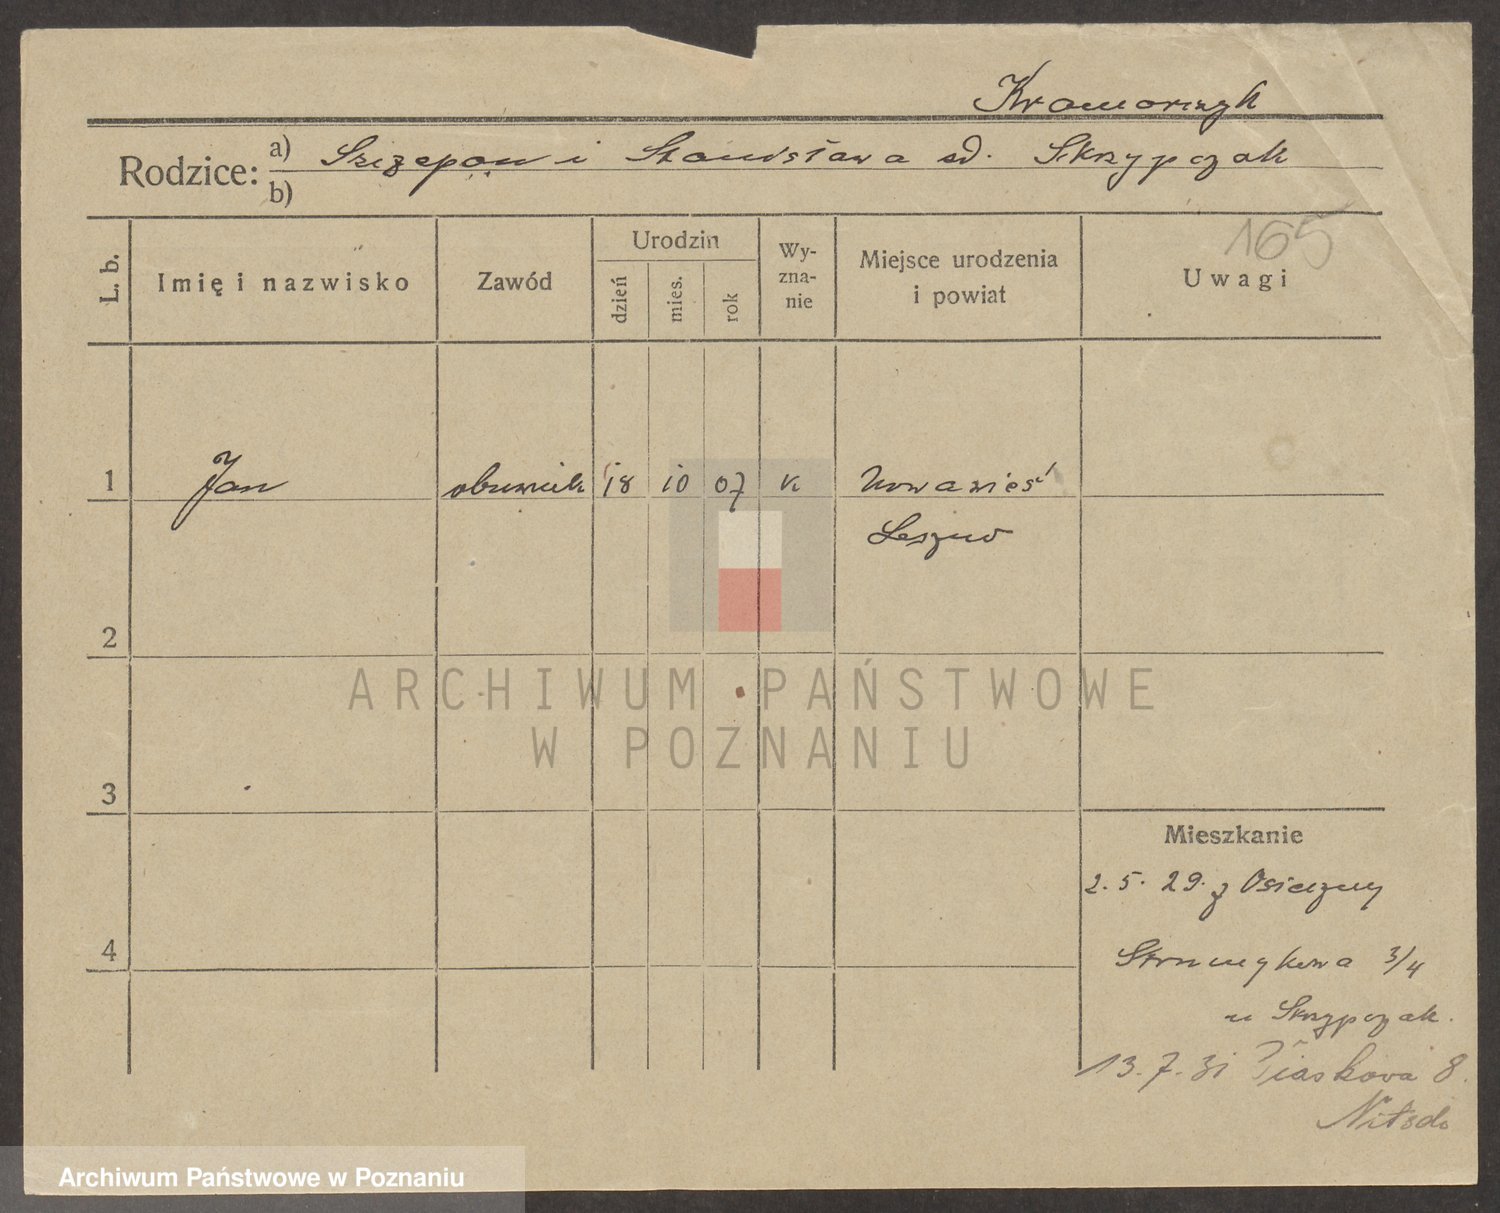 Kramarczyk
Rodzice: a) Szczepan i Stanisława sd. Skrzypczak
b)
165
L. b. Imię i nazwisko Zawód Urodzin Wy-zna-nie Miejsce urodzenia i powiat Uwagi
dzień mies. rok
1 Jan obuwnik 18 10 07 k Nowawieś
Leszno
2
ARCHIWUM PAŃSTWOWE
W POZNANIU
3
Mieszkanie
2. 5. 29. z Osieczny
4
3/4
u Skrzypczak.
13. 7. 31 Piaskova 8.
Archiwum Państwowe w Poznaniu